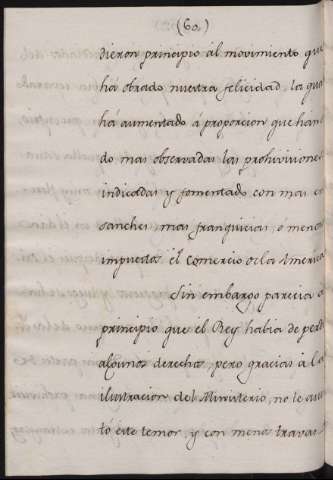 (60)
dieron principio al movimiento que
há obrado nuestra felicidad, la qual
há aumentado á proporcion que han
do mas observadas las prohiviciones
indicadas y fomentado con mas en
sanches, mas franquicias ó menos
impuestos el Comercio de la America
Sin embargo parecia al
principio que él Rey habia de perd
algunos derechos, pero gracias á la
ilustracion del Ministerio, no le asus
to este temor, y con menos travas